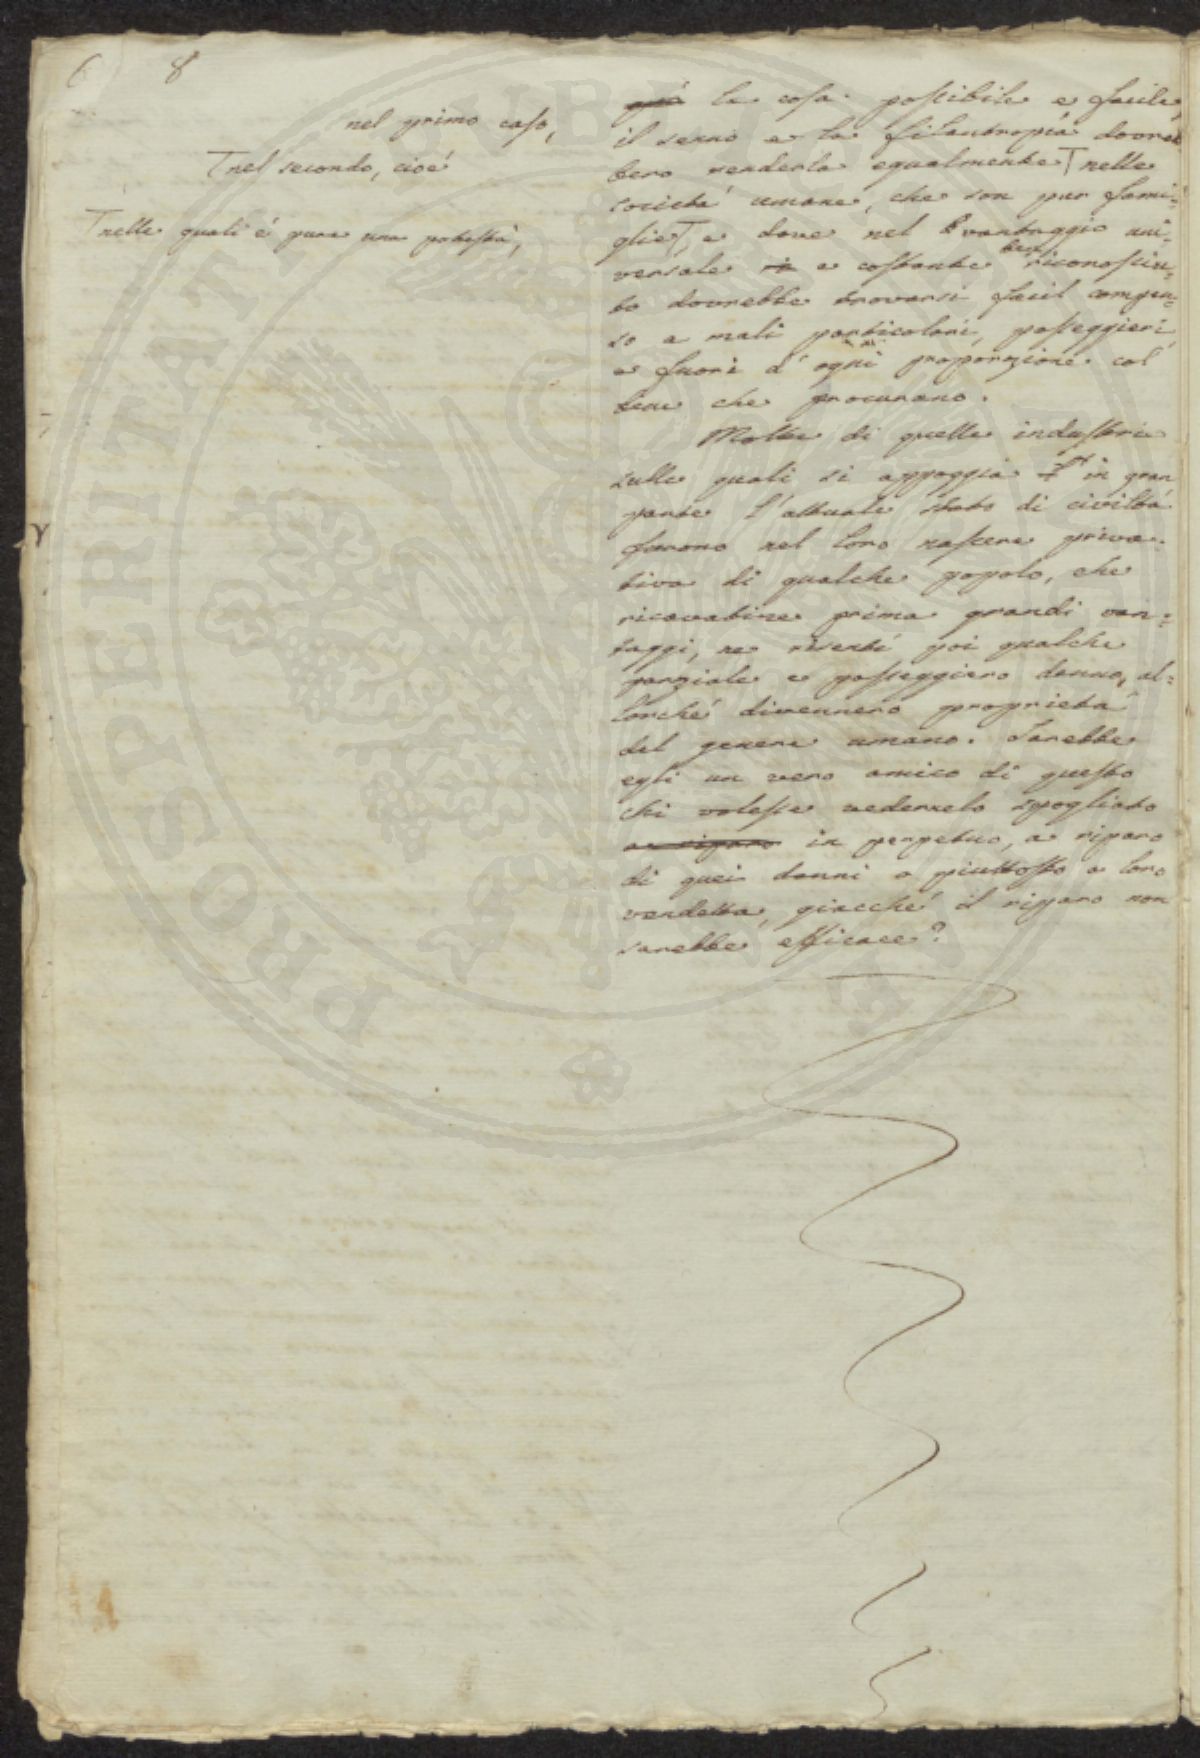 6 8
nel primo caso,
T nel secondo, cioé
T nelle quali é pure una potestá,
quá la cosa possibile e facile,
il senno e la filantropia dovreb
bero renderla egualmente T nelle
societá umane, che son pur fami-
glie T, e dove nel vantaggio uni-
versale e costante ben riconosciu-
to dovrebbe trovarsi facil compen-
so a mali particolari, passeggieri,
e fuori d'ogni proporzione col
bene che procurano.
Molte di quelle industrie
sulle quali si appoggia in gran
parte l'attuale stato di civiltá
furono nel loro nascere priva-
tiva di qualche popolo, che
ricavatine prima grandi van-
taggi, ne risentí poi qualche
parziale e passeggiero danno, al-
lorché divennero proprietá
del genere umano. Sarebbe
egli un vero amico di questo
chi volesse vedernelo spogliato
a riparo in perpetuo, a riparo
di quei danni o piuttosto a loro
vendetta, giacché il riparo non
sarebbe efficace?
PROSPERITATI PUBLICAE